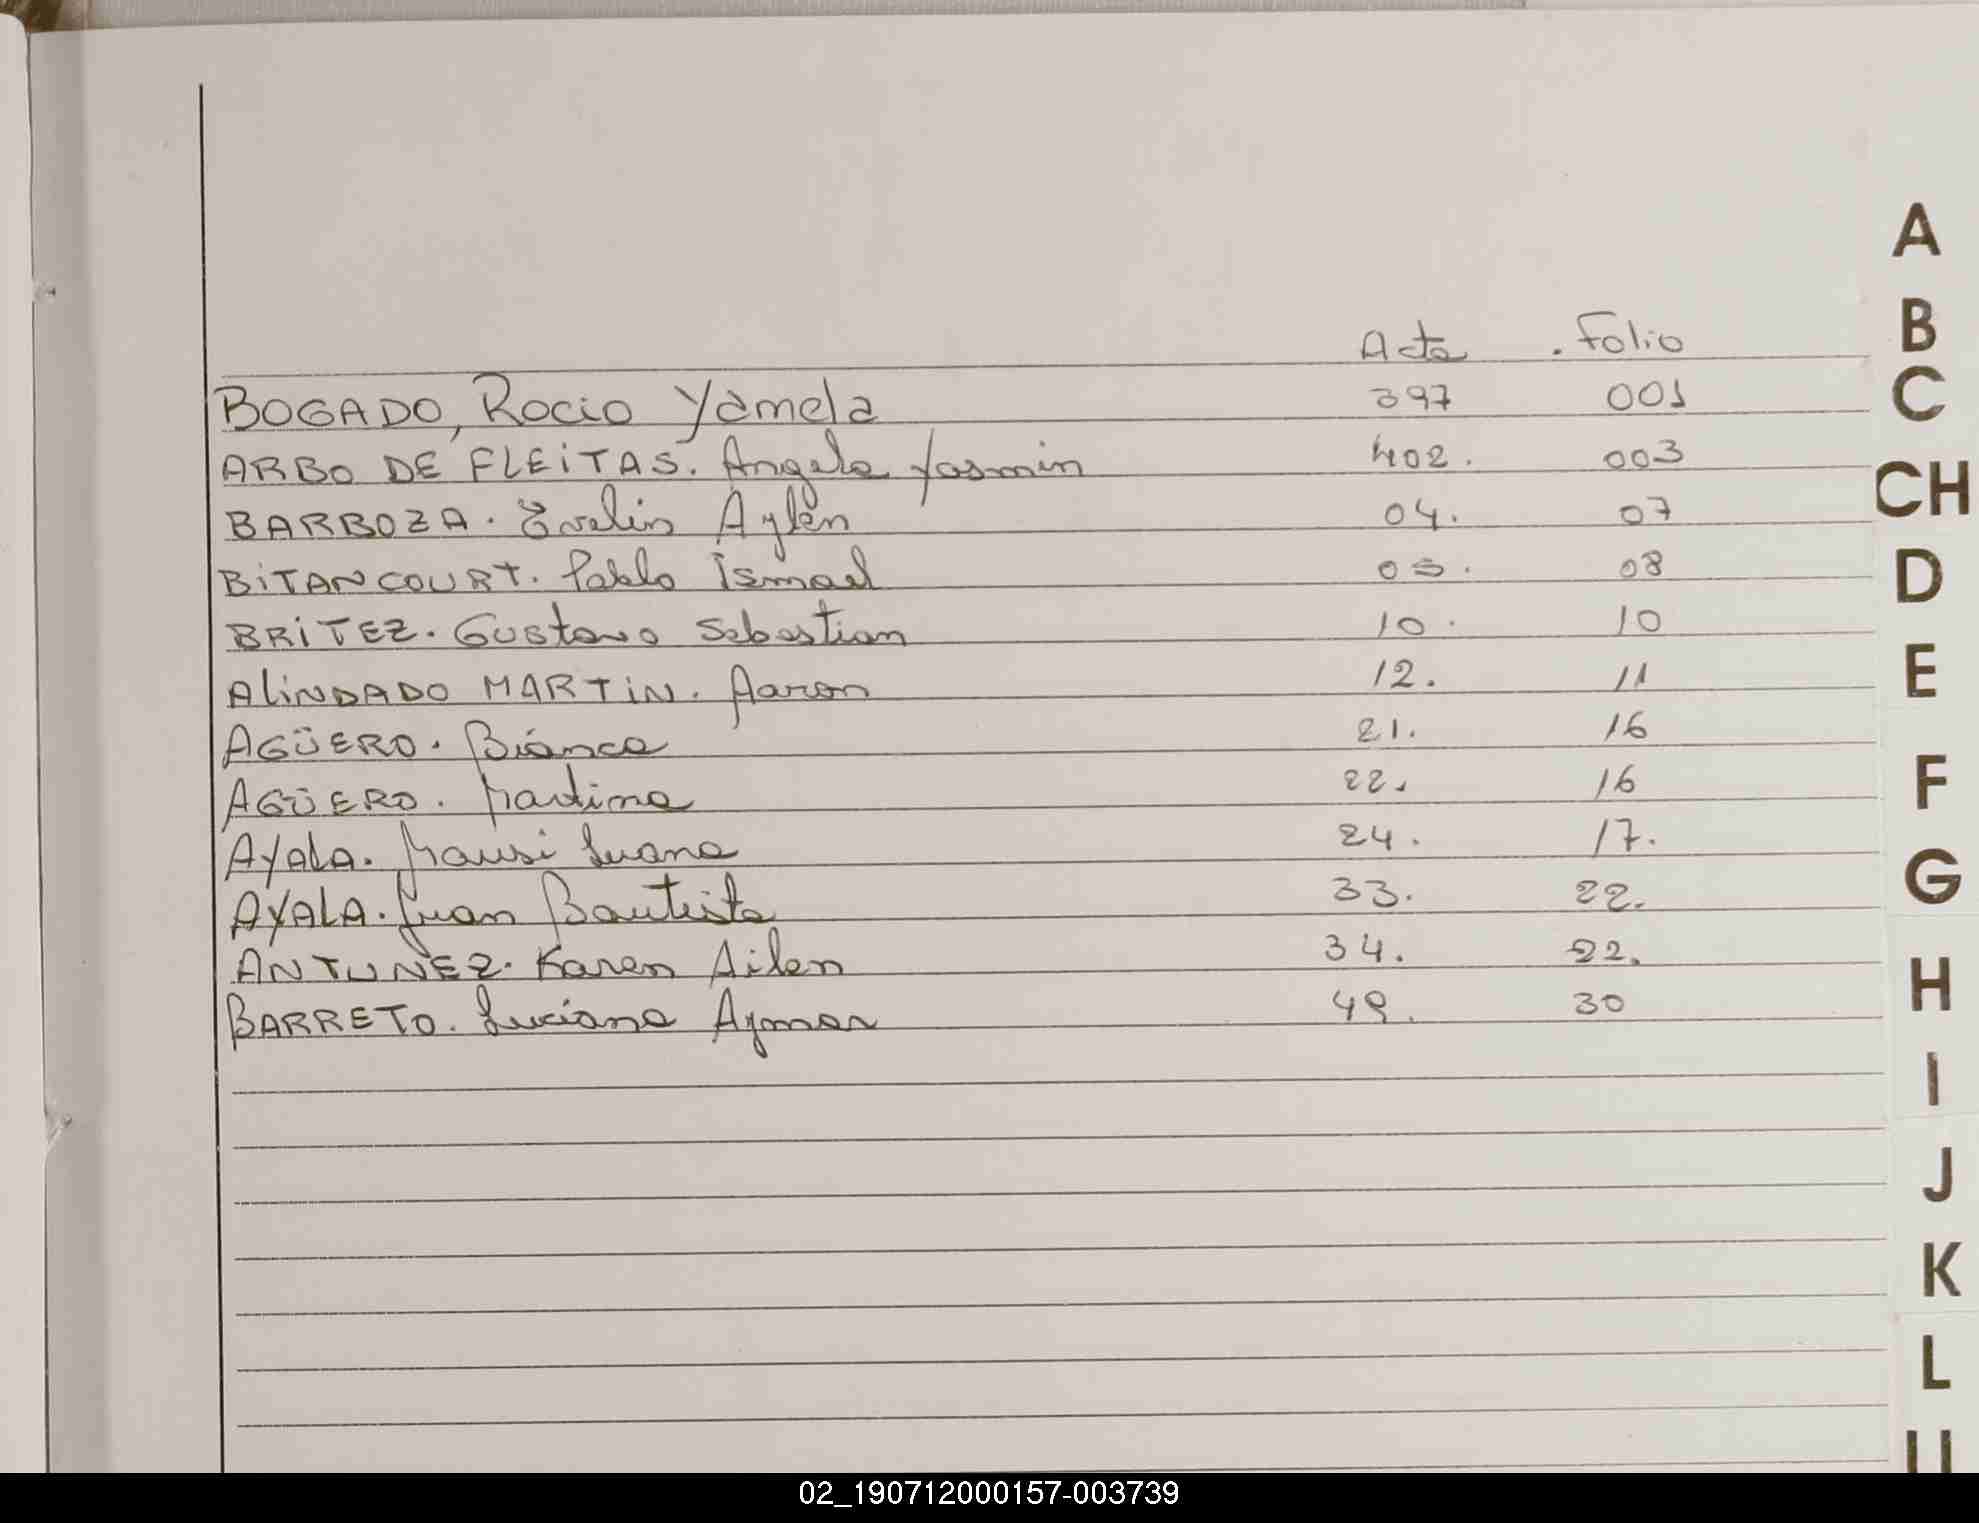 Acta . Folio
BOGADO, Rocio Yamela 397 001
ARBO DE FLEiTAS. Angela Yasmin 402. 003
BARBOZA. Evelin Aylén 04. 07
BiTANCOURT. Pablo Ismael 05. 08
BRiTEZ. Gustavo Sebastian 10. 10
ALiNDADO MARTiN. Aaron 12. 11
AGÜERO. Bianca 21. 16
AGÜERO. Martina 22. 16
AYALA. Luana 24. 17.
AYALA. Juan Bautista 33. 22.
ANTUNEZ. Karen Ailen 34. 22.
BARRETO. Luciana Aymar 49. 30
A
B
C
CH
D
E
F
G
H
I
J
K
L
02_190712000157-003739